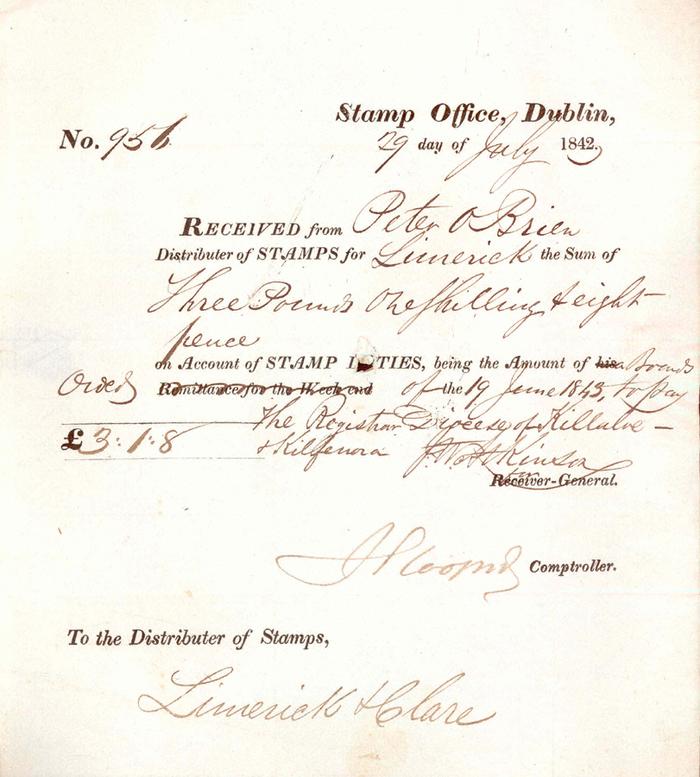 Stamp Office, Dublin,
No. 956
29 day of July 1842.
RECEIVED from Peter O Brien
Distributer of STAMPS for Limerick the Sum of
Three Pounds One Shilling & eight
pence
on Account of STAMP DUTIES, being the Amount of his a Boards
Order Remittance for the Week end of the 19 June 1843, to pay
The Registrar Diocese of Killaloe
£ 3: 1: 8 & Kilfenora
Receiver-General.
Comptroller.
To the Distributer of Stamps,
Limerick & Clare